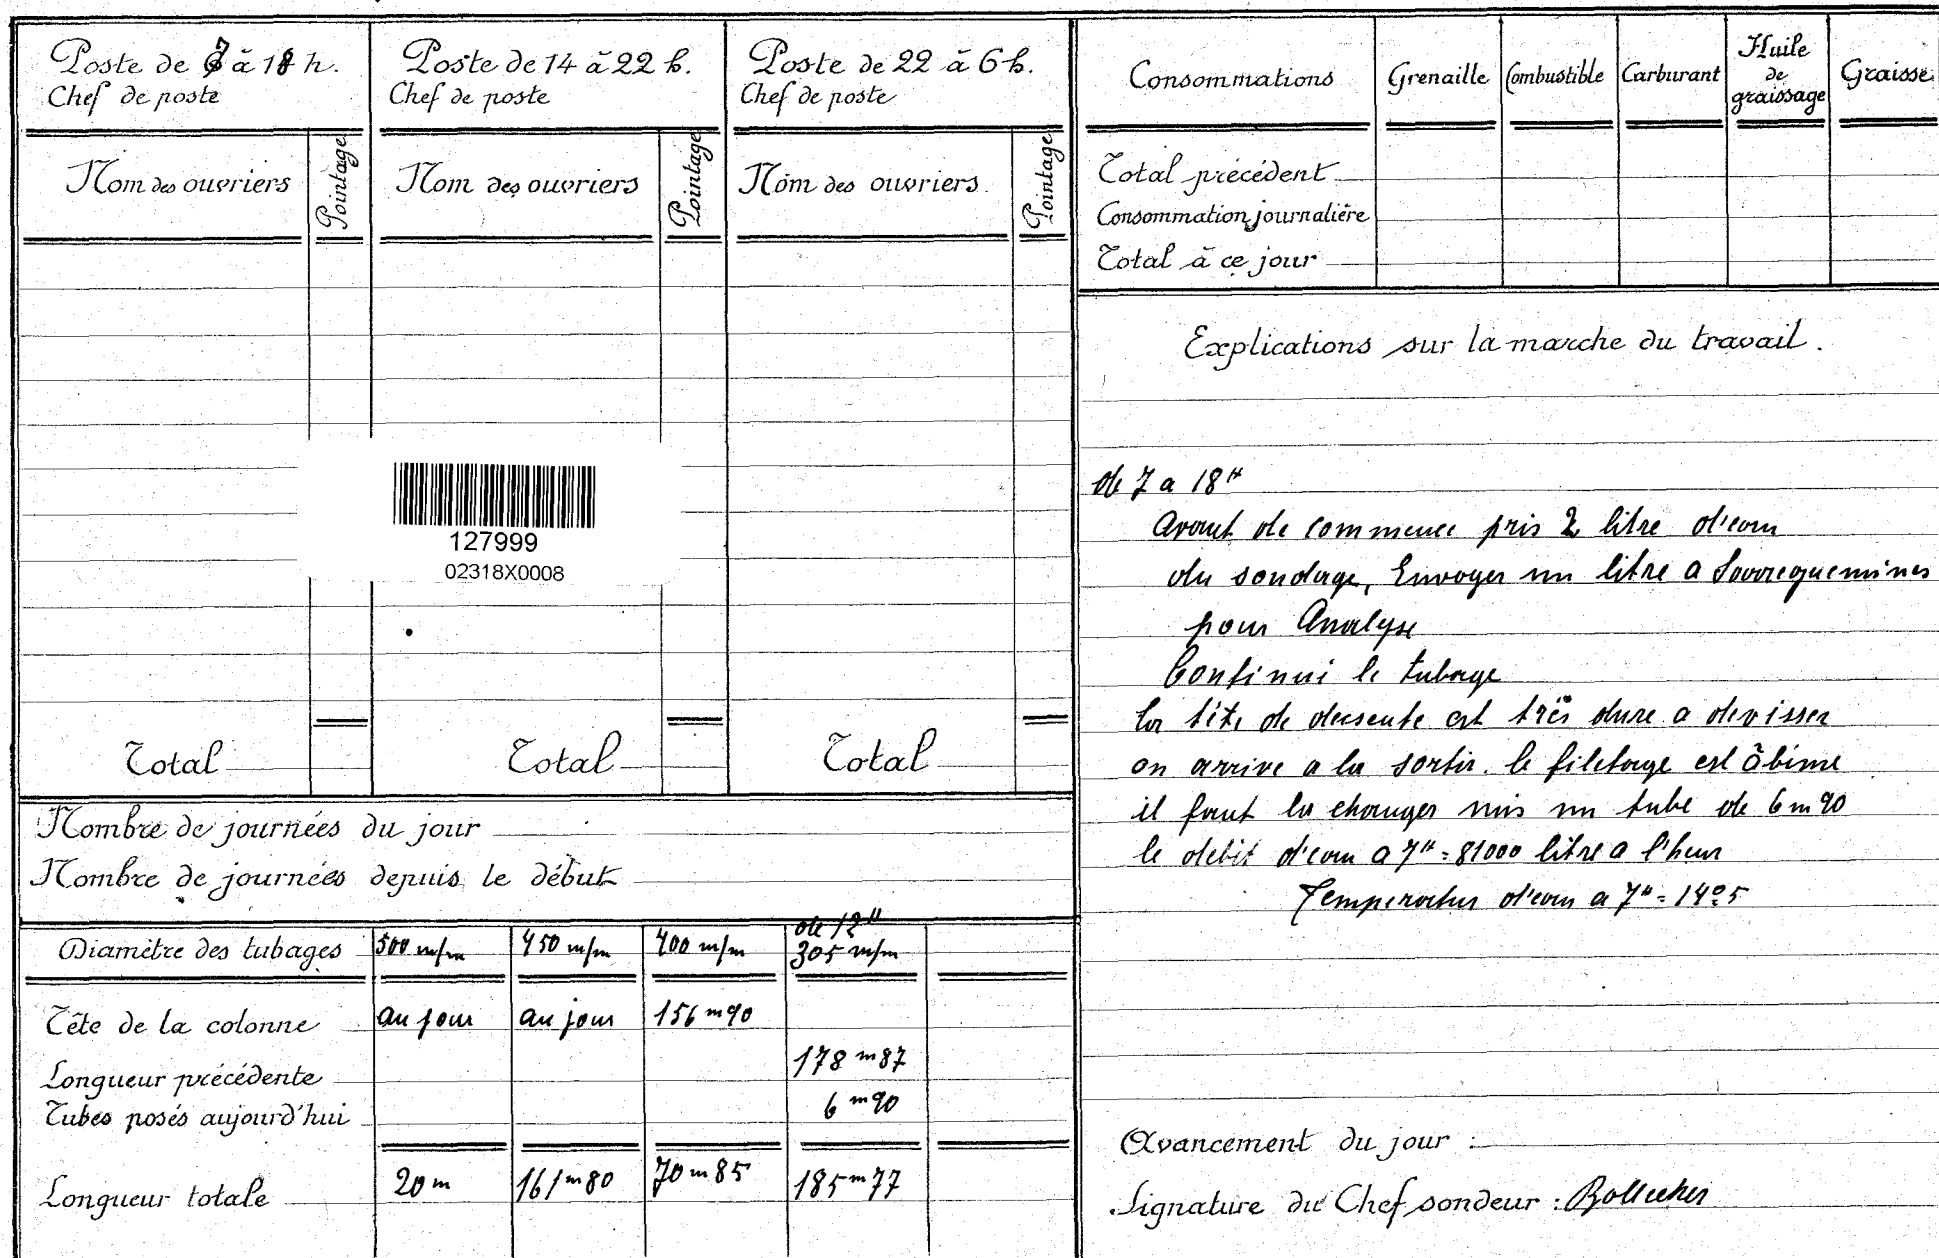 Poste de 7 à 18 h.
Chef de poste
Nom des ouvriers
Pointage
Total
Poste de 14 à 22 h.
Chef de poste
Nom des ouvriers
Pointage
Total
Poste de 22 à 6 h.
Chef de poste
Nom des ouvriers
Pointage
Total
127999
02318X0008
Nombre de journées du jour
Nombre de journées depuis le début
Diamètre des tubages 500 m/m 450 m/m 400 m/m de 12" 305 m/m
Tête de la colonne au jour au jour 156 m 90
Longueur précédente 178 m 87
Tubes posés aujourd'hui 6 m 90
Longueur totale 20 m 161 m 80 70 m 85 185 m 77
Consommations Grenaille Combustible Carburant Huile de graissage Graisse
Total précédent
Consommation journalière
Total à ce jour
Explications sur la marche du travail.
de 7 a 18 H
Avant de commence pris 2 litre d'eau
du sondage, Envoyer un litre a Sarreguemines
pour Analyse
Continui le tubage
la tête de descente est très dure a devisser
on arrive a la sortir. le filetage est âbime
il faut la changer mis un tube de 6 m 90
le debit d'eau a 7 H = 81000 litre a l'heur
Temperatur d'eau a 7 H = 14°5
Avancement du jour :
Signature du Chef sondeur :